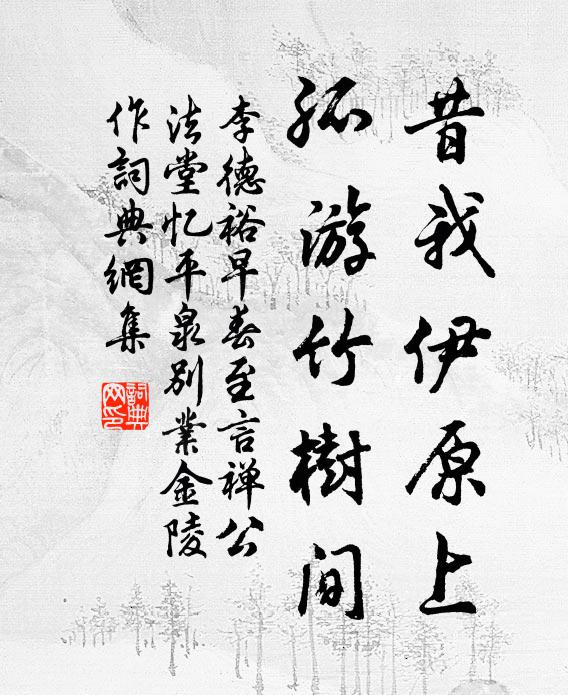 昔我伊原上
孤游竹樹间
李德裕早春至言禅公
法堂忆平泉别業金陵
作詞典網集
詞典网印